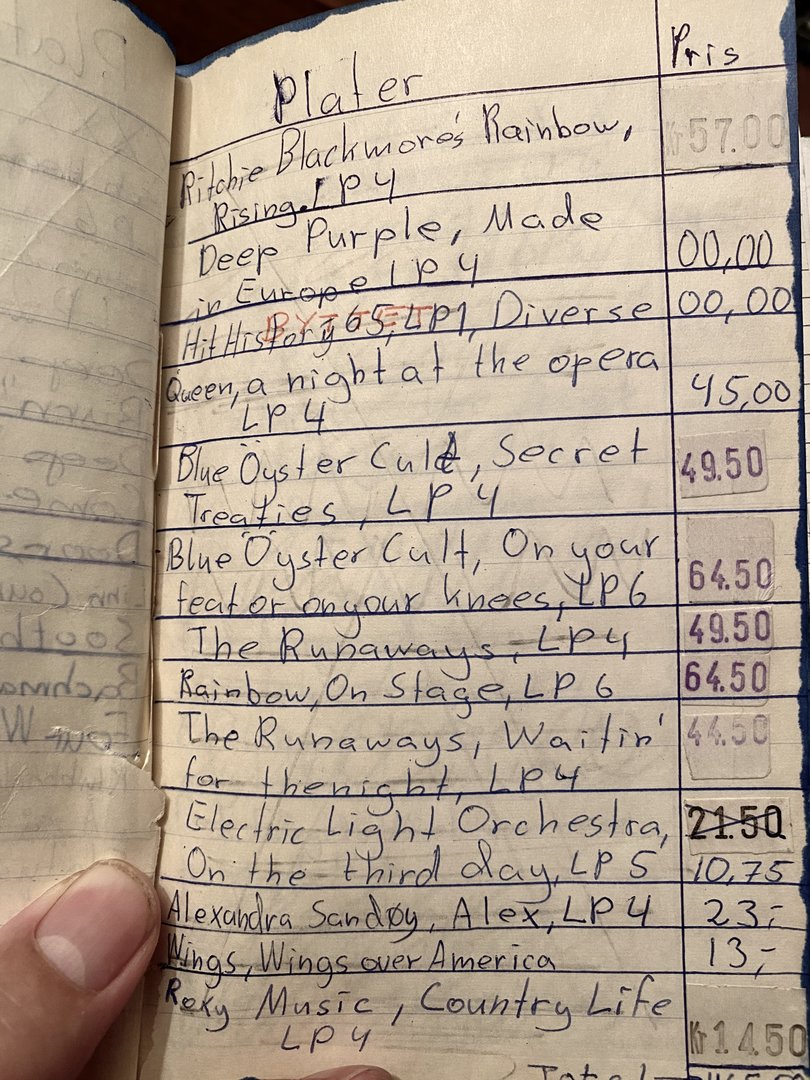 Plater
Pris
Ritchie Blackmore's Rainbow,
Rising. LP 4
Kr 57.00
Deep Purple, Made
in Europe LP 4
00,00
BYTTET
Hit History 65, LP1, Diverse
00,00
Queen, a night at the opera
LP 4
45,00
Blue Öyster Cult, Secret
Treaties, LP 4
49.50
Blue Öyster Cult, On your
feat or on your knees, LP 6
64.50
The Runaways, LP 4
49.50
Rainbow, On Stage, LP 6
64.50
The Runaways, Waitin'
for the night, LP 4
44.50
Electric Light Orchestra,
21.50
On the third day, LP 5
10,75
Alexandra Sandøy, Alex, LP 4
23,-
Wings, Wings over America
13,-
Roxy Music, Country Life
LP 4
Kr 14.50
Total